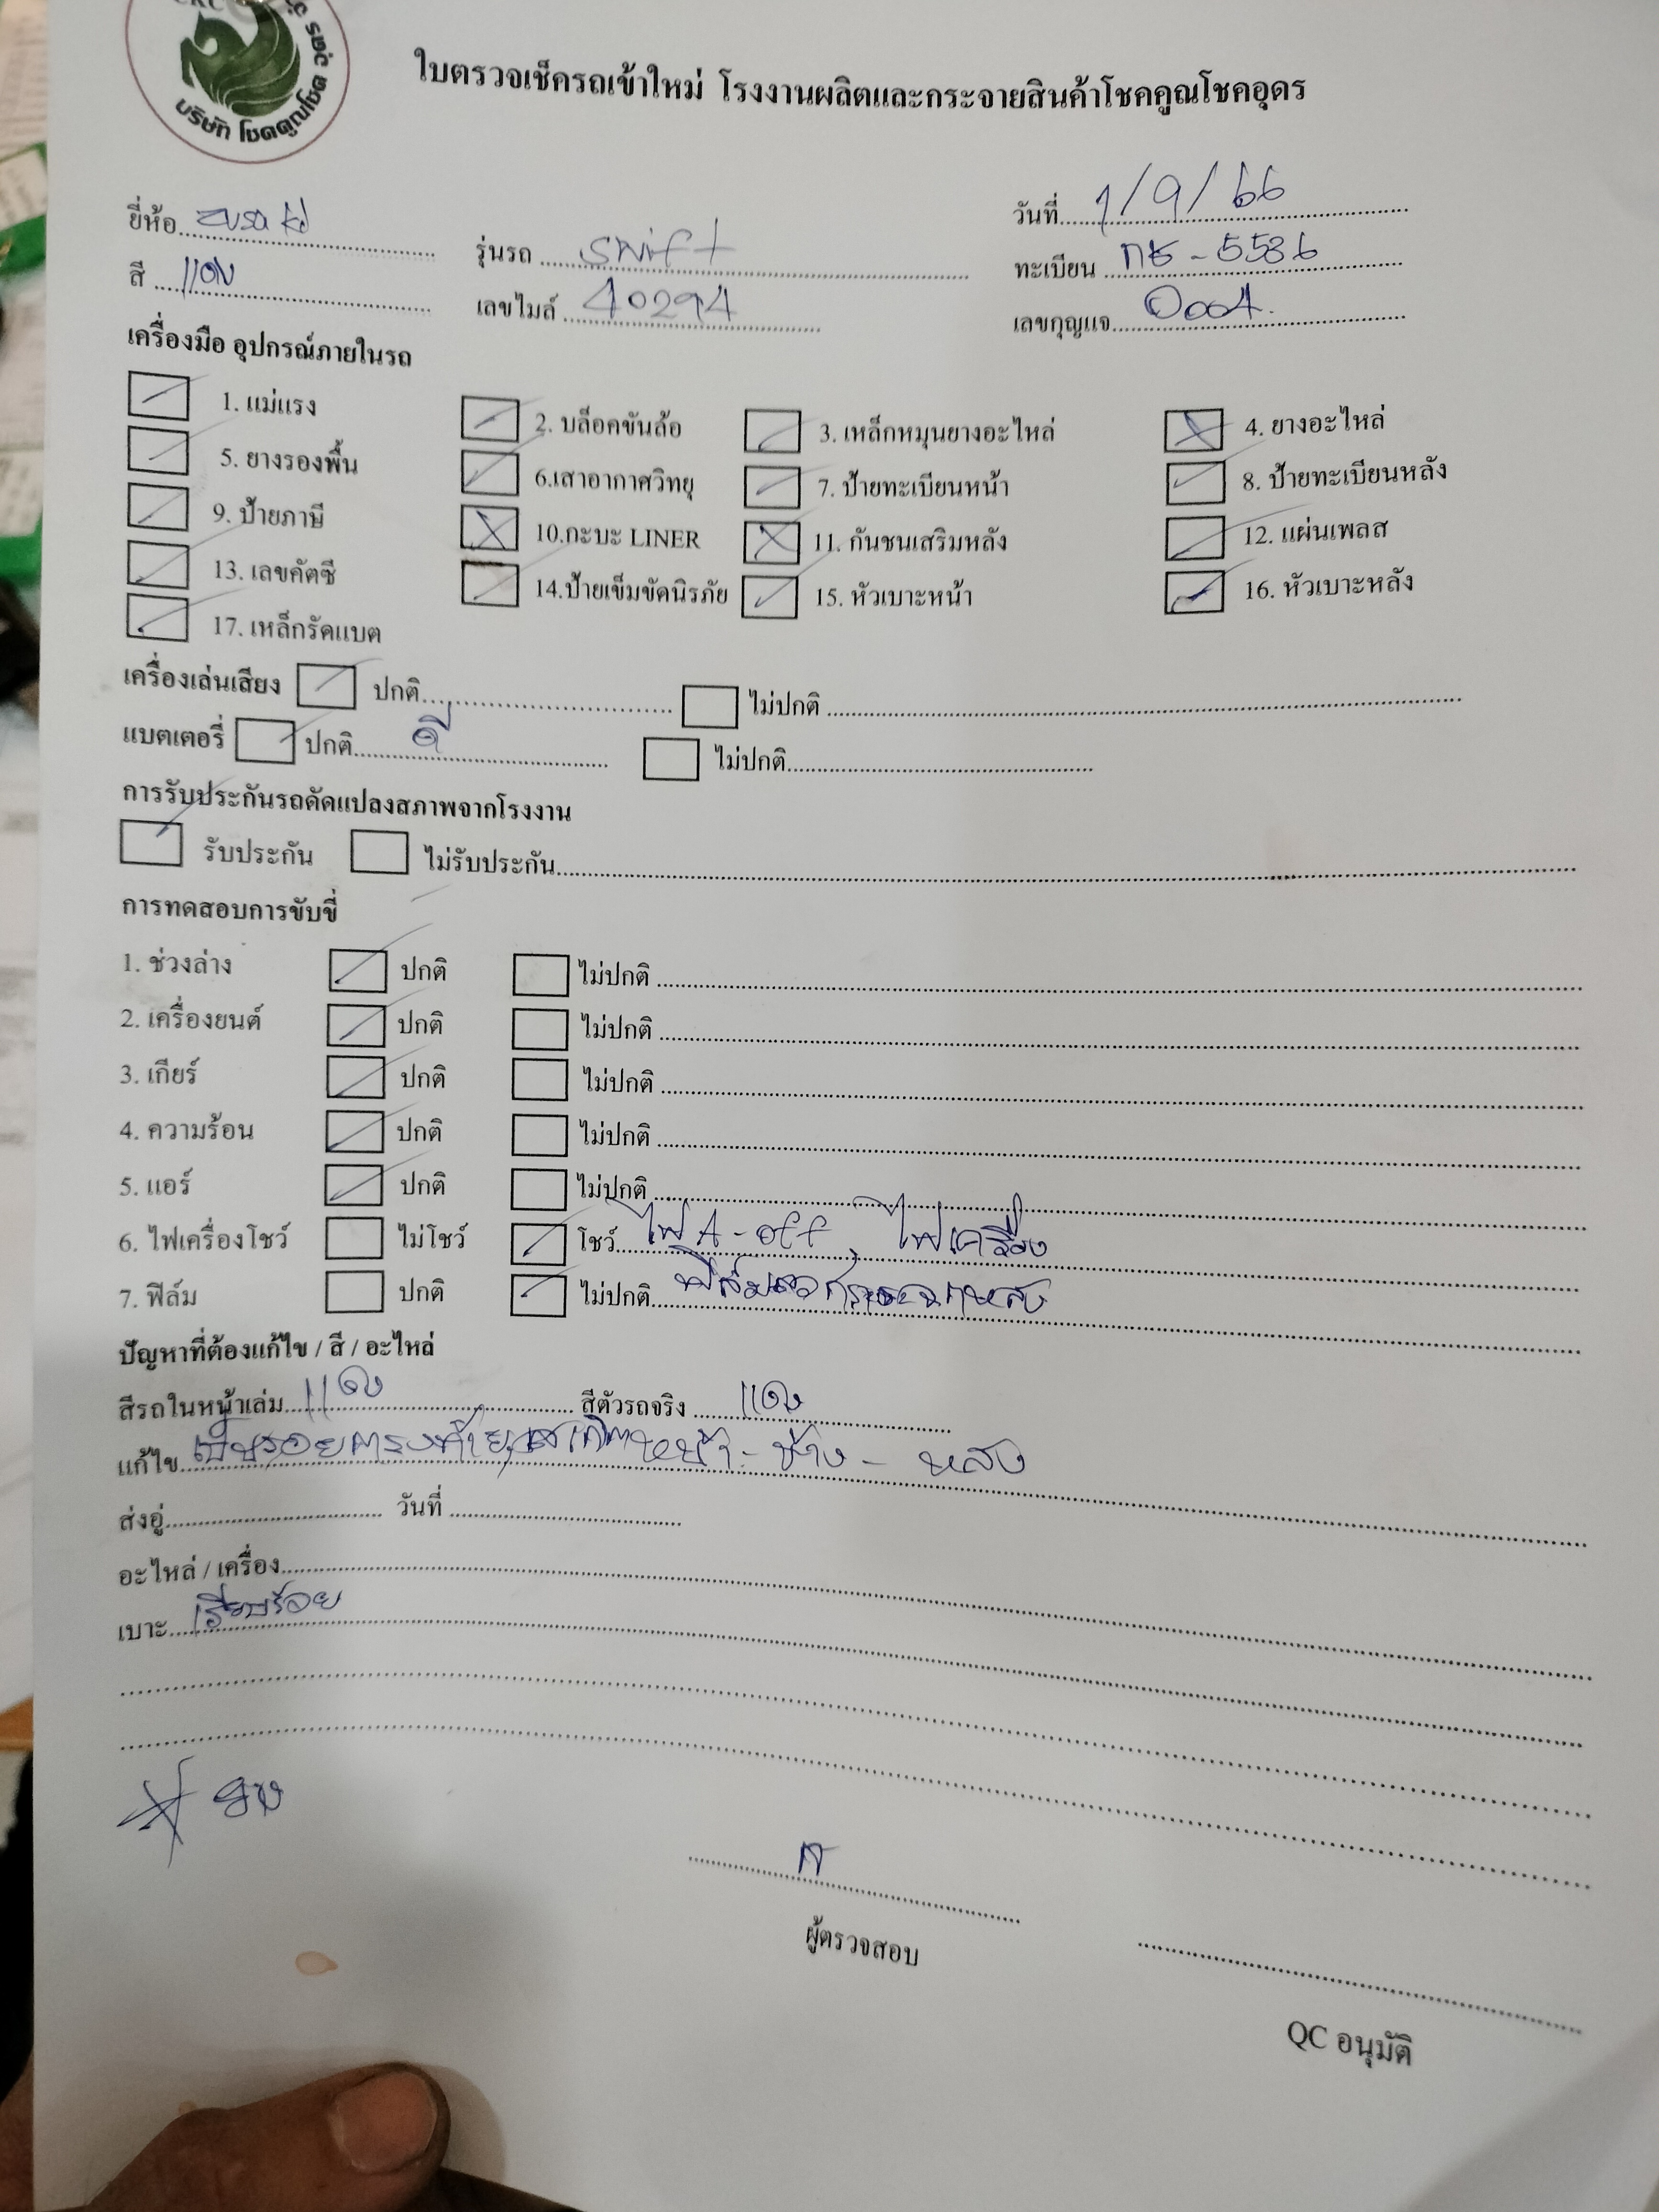 บริษัท โชคคูณโชค อุดร
ใบตรวจเช็ครถเข้าใหม่ โรงงานผลิตและกระจายสินค้าโชคคูณโชคอุดร
วันที่ 1/9/66
ยี่ห้อ รุ่นรถ swift ทะเบียน กธ - 5536
สี แดง เลขไมล์ 40294 เลขกุญแจ 0004
เครื่องมือ อุปกรณ์ภายในรถ
1. แม่แรง 2. บล็อคขันล้อ 3. เหล็กหมุนยางอะไหล่ 4. ยางอะไหล่
5. ยางรองพื้น 6.เสาอากาศวิทยุ 7. ป้ายทะเบียนหน้า 8. ป้ายทะเบียนหลัง
9. ป้ายภาษี 10.กะบะ LINER 11. กันชนเสริมหลัง 12. แผ่นเพลส
13. เลขคัตซี 14.ป้ายเข็มขัดนิรภัย 15. หัวเบาะหน้า 16. หัวเบาะหลัง
17. เหล็กรัดแบต
เครื่องเล่นเสียง ปกติ ไม่ปกติ
แบตเตอรี่ ปกติ ดี ไม่ปกติ
การรับประกันรถดัดแปลงสภาพจากโรงงาน
รับประกัน ไม่รับประกัน
การทดสอบการขับขี่
1. ช่วงล่าง ปกติ ไม่ปกติ
2. เครื่องยนต์ ปกติ ไม่ปกติ
3. เกียร์ ปกติ ไม่ปกติ
4. ความร้อน ปกติ ไม่ปกติ
5. แอร์ ปกติ ไม่ปกติ
6. ไฟเครื่องโชว์ ไม่โชว์ โชว์ ไฟ A-off , ไฟเครื่อง
7. ฟิล์ม ปกติ ไม่ปกติ
ปัญหาที่ต้องแก้ไข / สี / อะไหล่
สีรถในหน้าเล่ม แดง สีตัวรถจริง แดง
แก้ไข เป็นรอย หน้า - ข้าง - หลัง
ส่งอู่ วันที่
อะไหล่ / เครื่อง
เบาะ เรียบร้อย
ผู้ตรวจสอบ
QC อนุมัติ